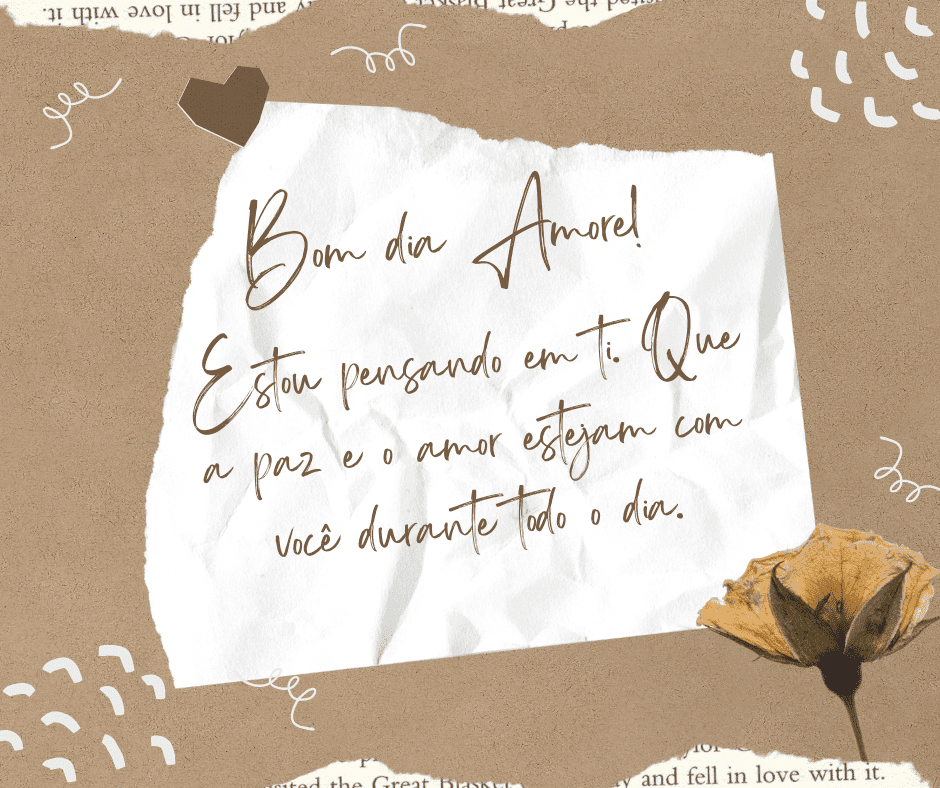 and fell in love with it.
sited the Great
Bom dia Amore!
Estou pensando em ti. Que
a paz e o amor estejam com
você durante todo o dia.
sited the Great Blasket
y and fell in love with it.